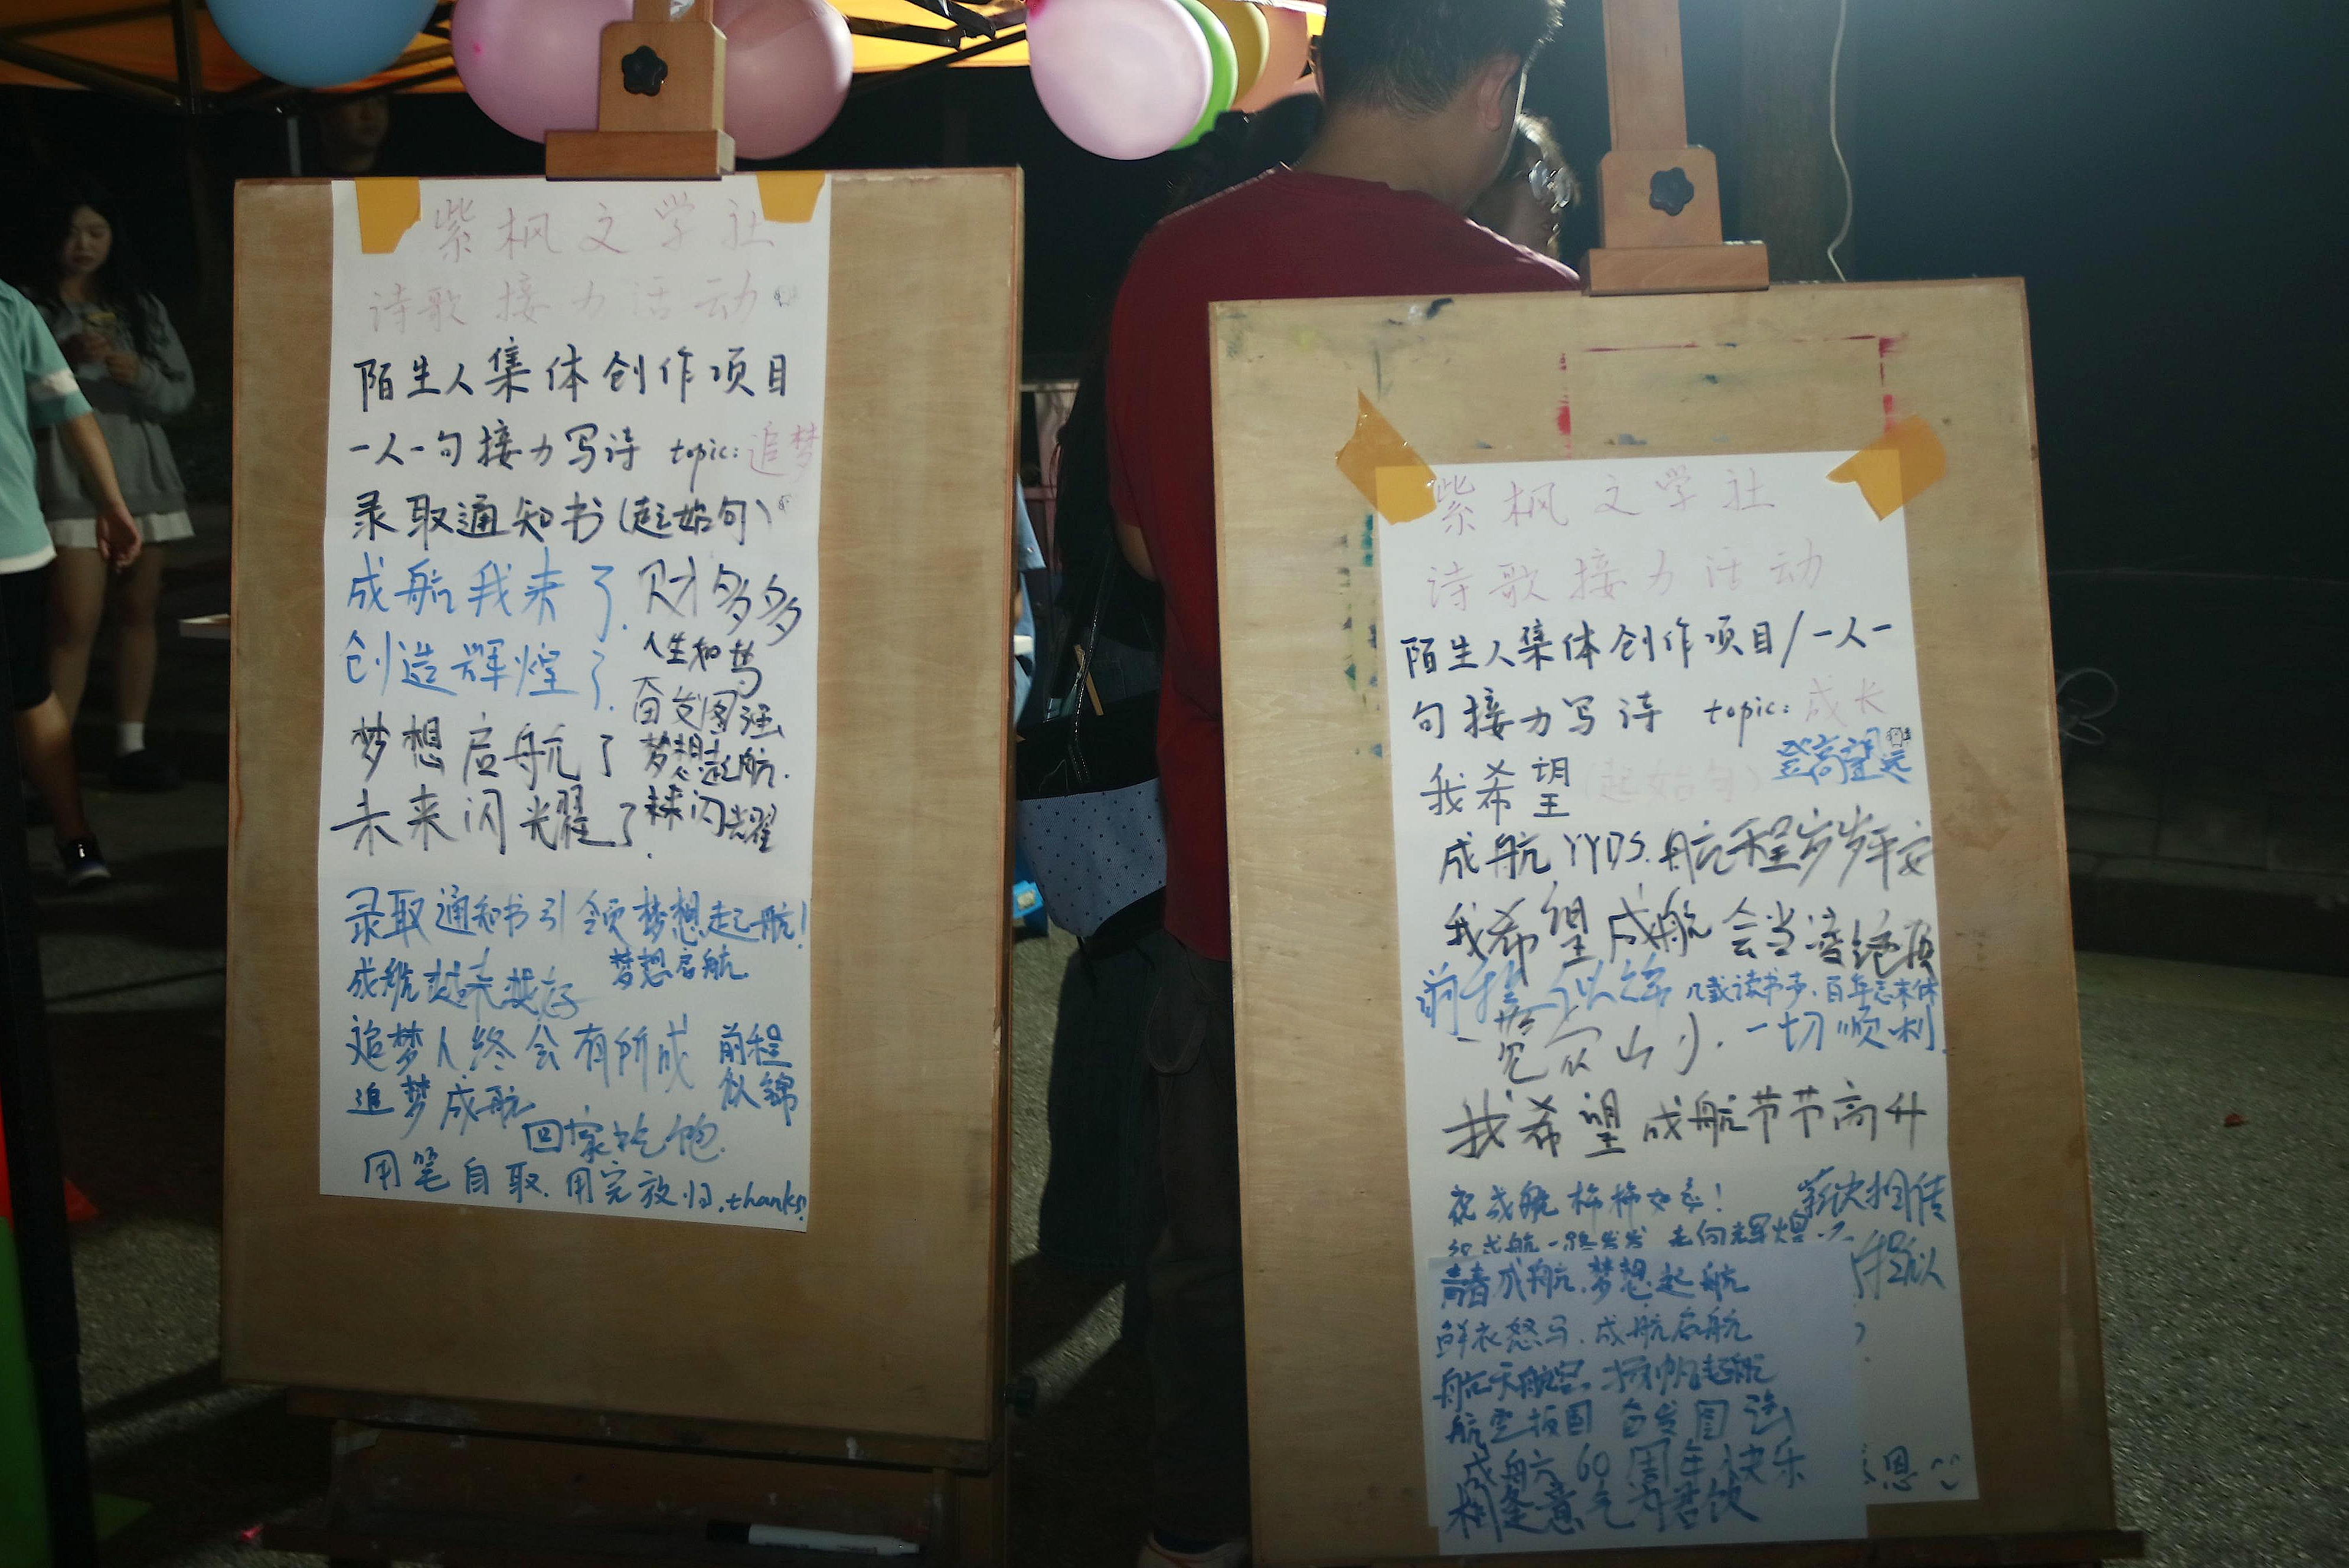 紫枫文学社
诗歌接力活动
陌生人集体创作项目
一人一句接力写诗 topic:追梦
录取通知书(起始句)
成航我来了.
财多多
创造辉煌了.
人生和梦
奋发图强
梦想启航了
梦想起航.
未来闪光耀了.
未来闪光耀
录取通知书引领梦想起航!
成航越来越好
梦想启航
追梦人终会有所成
前程
似锦
追梦成航
回家吃饱.
用笔自取.用完放归.thanks!
紫枫文学社
诗歌接力活动
陌生人集体创作项目/一人一
句接力写诗 topic:成长
登高望远
我希望(起始句)
成航YYDS.航程岁岁平安
我希望成航会当凌绝顶
前程似锦
几载读书步.百年志未休
一览众山小.
一切顺利.
我希望成航节节高升
祝成航柿柿如意!
薪火相传
祝成航一路发发 走向辉煌
程似
青春成航.梦想起航
鲜衣怒马.成航启航
航天航空.扬帆起航
航空报国 奋发图强
成航60周年快乐
相逢意气为君饮
恩